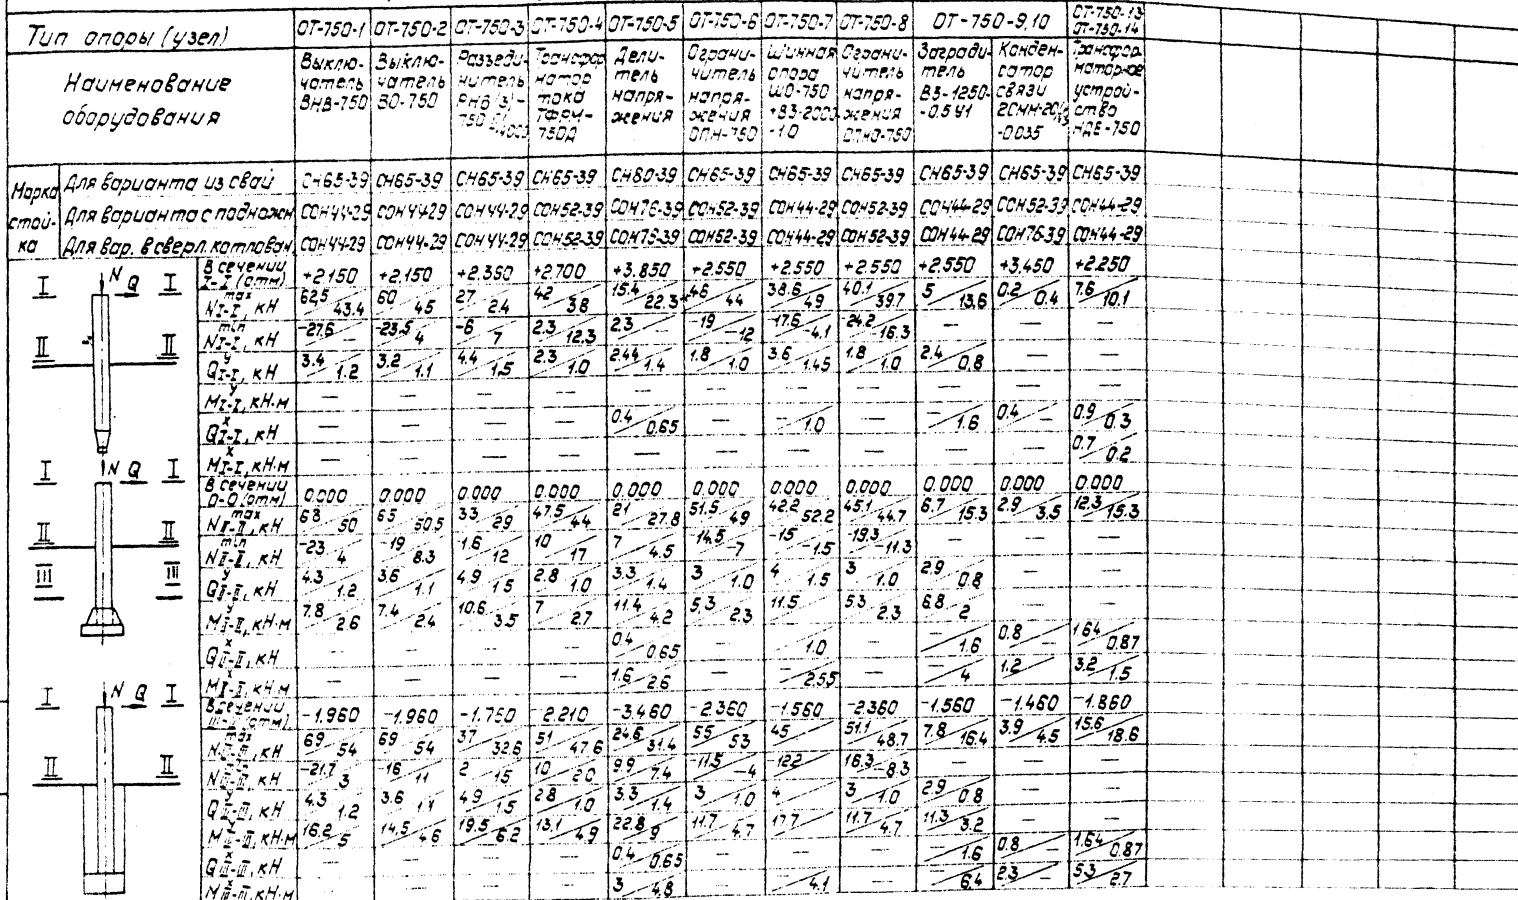 Тип опоры (узел) ОТ-750-1 ОТ-750-2 ОТ-750-3 ОТ-750-4 ОТ-750-5 ОТ-750-6 ОТ-750-7 ОТ-750-8 ОТ-750-9,10 ОТ-750-13 ОТ-750-14
Наименование оборудования
Выключатель ВНВ-750
Выключатель ВО-750
Разъединитель
Трансформатор тока ТФРМ-750Д
Делитель напряжения
Ограничитель напряжения ОПН-750
Шинная опора ШО-750 +ВЗ-2000-1.0
Ограничитель напряжения ОПНО-750
Заградитель ВЗ-1250-0.5У1
Конденсатор связи -0035
Трансформаторное устройство НДЕ-750
Марка стойка
Для варианта из свай СН65-39 СН65-39 СН65-39 СН65-39 СН80-39 СН65-39 СН65-39 СН65-39 СН65-39 СН65-39 СН65-39
Для варианта с поднож СОН44-29 СОН44-29 СОН44-29 СОН52-39 СОН76-39 СОН52-39 СОН44-29 СОН52-39 СОН44-29 СОН52-39 СОН44-29
Для вар. в сверл.котлован СОН44-29 СОН44-29 СОН44-29 СОН52-39 СОН76-39 СОН52-39 СОН44-29 СОН52-39 СОН44-29 СОН76-39 СОН44-29
В сечении I-I (отм) +2.150 +2.150 +2.350 +2.700 +3.850 +2.550 +2.550 +2.550 +2.550 +3.450 +2.250
max N I-I, кН 62.5/43.4 60/45 27/24 42/38 15.4/22.3 46/44 38.6/49 40.1/39.7 5/13.6 0.2/0.4 7.6/10.1
min N I-I, кН -27.6/— -23.5/4 -6/7 2.3/12.3 2.3/— -19/-12 -17.6/-4.1 -24.2/-16.3 — — —
Q y I-I, кН 3.4/1.2 3.2/1.1 4.4/1.5 2.3/1.0 2.44/1.4 1.8/1.0 3.6/1.45 1.8/1.0 2.4/0.8 — —
M y I-I, кН·м — — — — — — — — — — —
Q x I-I, кН — — — — 0.4/0.65 — —/1.0 — —/1.6 0.4/— 0.9/0.3
M x I-I, кН·м — — — — — — — — — — 0.7/0.2
В сечении 0-0 (отм) 0.000 0.000 0.000 0.000 0.000 0.000 0.000 0.000 0.000 0.000 0.000
max N II-II, кН 68/50 65/50.5 33/29 47.5/44 21/27.8 51.5/49 42.2/52.2 45.1/44.7 6.7/15.3 2.9/3.5 12.3/15.3
min N II-II, кН -23/4 -19/8.3 -1.6/12 10/17 7/4.5 -14.5/-7 -15/-1.5 -19.3/-11.3 — — —
Q y II-II, кН 4.3/1.2 3.6/1.1 4.9/1.5 2.8/1.0 3.3/1.4 3/1.0 4/1.5 3/1.0 2.9/0.8 — —
M y II-II, кН·м 7.8/2.6 7.4/2.4 10.6/3.5 7/2.7 11.4/4.2 5.3/2.3 11.5 5.3/2.3 6.8/2 — —
Q x II-II, кН — — — — 0.4/0.65 — —/1.0 — —/1.6 0.8/— 1.64/0.87
M x II-II, кН·м — — — — 1.6/2.6 — —/2.55 — —/4 1.2/— 3.2/1.5
В сечении III-III (отм) -1.960 -1.960 -1.750 -2.210 -3.460 -2.360 -1.560 -2.360 -1.560 -1.460 -1.860
max N III-III, кН 69/54 69/54 37/32.6 51/47.6 24.6/31.4 55/53 45 51.1/48.7 7.8/16.4 3.9/4.5 15.6/18.6
N III-III, кН -21.7/3 -16/11 2/15 10/20 9.9/7.4 -11.5/-4 -12.2 -16.3/-8.3 — — —
Q y III-III, кН 4.3/1.2 3.6/1.1 4.9/1.5 2.8/1.0 3.3/1.4 3/1.0 4 3/1.0 2.9/0.8 — —
M y III-III, кН·м 16.2/5 14.5/4.6 19.5/6.2 13.1/4.9 22.8/9 11.7/4.7 17.7 11.7/4.7 11.3/3.2 — —
Q x III-III, кН — — — — 0.4/0.65 — — — —/1.6 0.8/— 1.64/0.87
M x III-III, кН·м — — — — 3/4.8 — —/4.1 — —/6.4 2.3/— 5.3/2.7
I N Q I
II II
I N Q I
II II
III III
I N Q I
II II